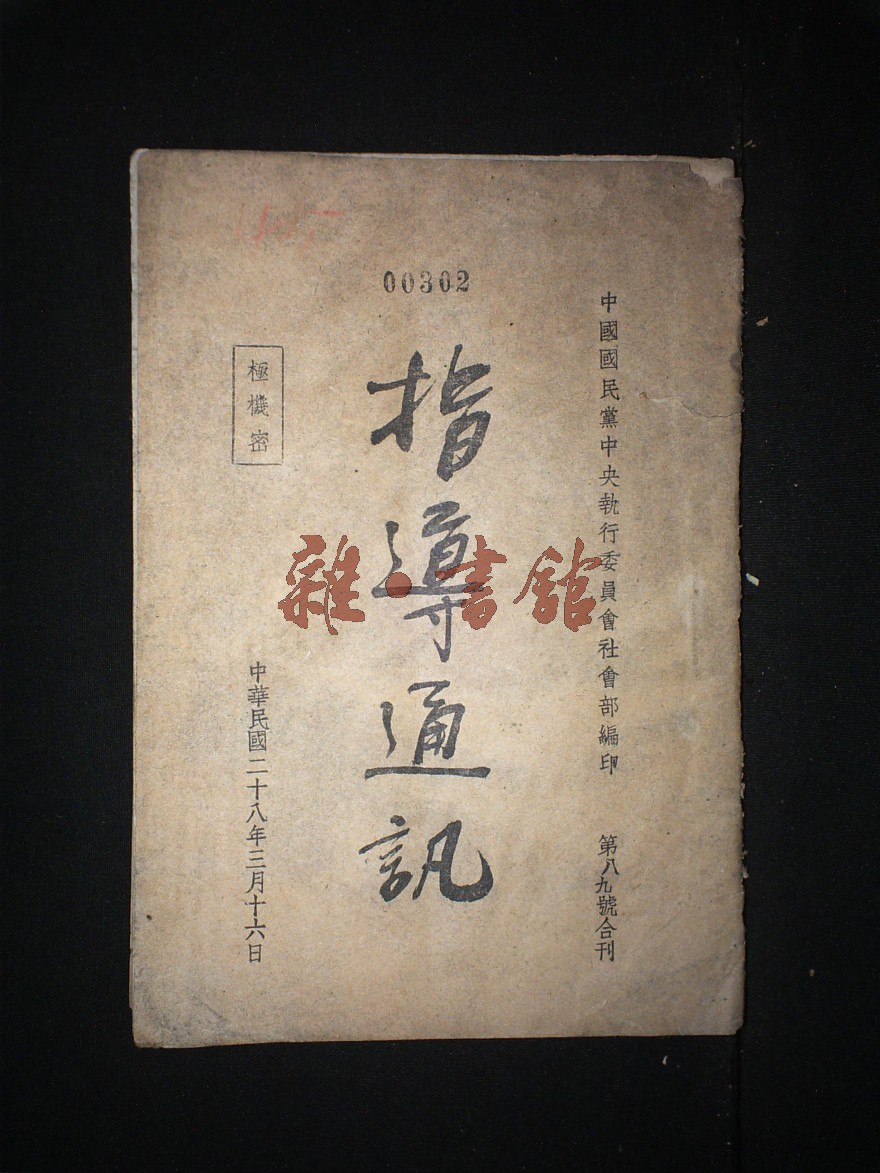 00302
中國國民黨中央執行委員會社會部編印
第八九號合刊
指導通訊
極機密
中華民國二十八年三月十六日
雜·書館